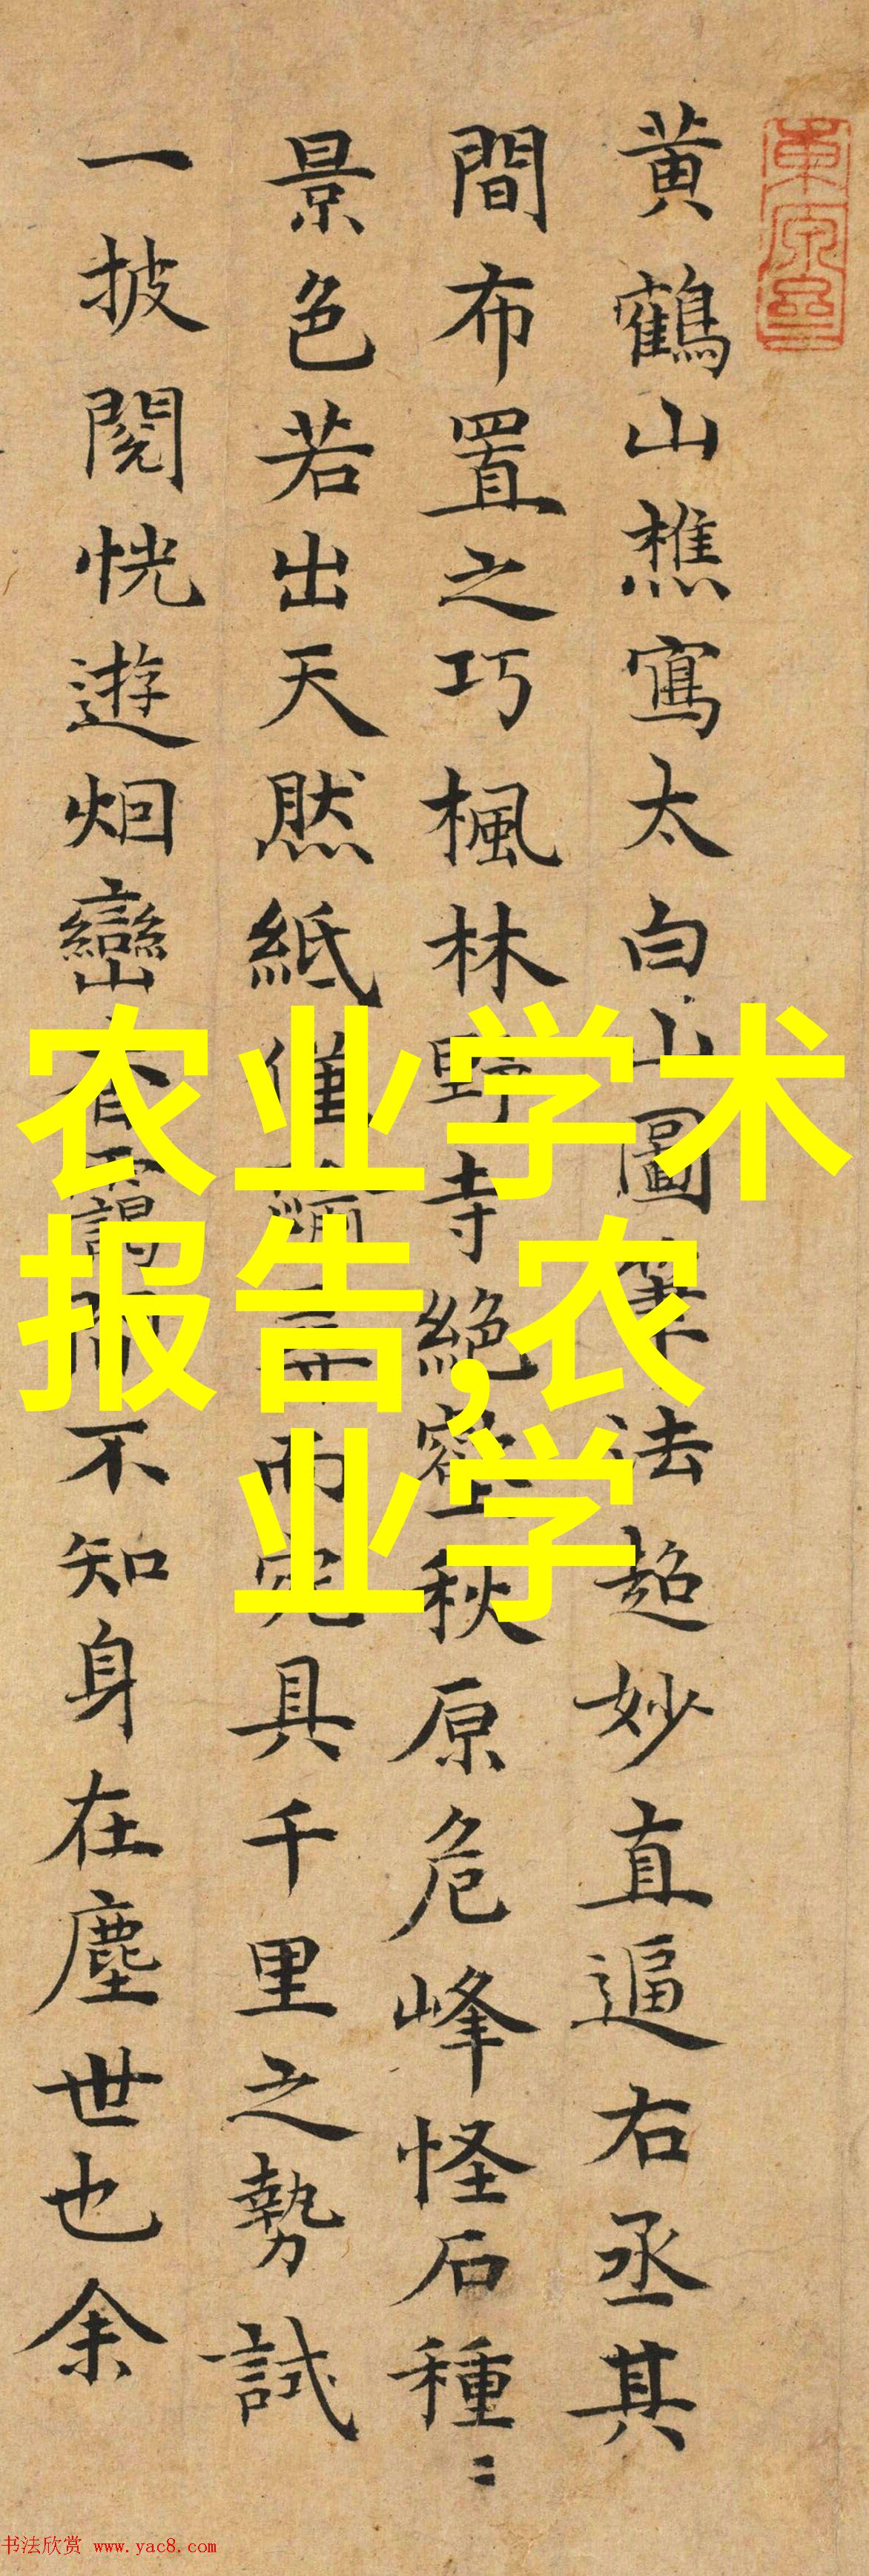 黄鶴山樵寫太白山圖筆法超妙直逼右丞其
間布置之巧楓林野寺絕壑秋原危峰怪石種〻
景色若出天然紙僅而完具千里之勢試
一披閱恍遊烟巒不知身在塵世也余
农业学术
报告,农
业学
书法欣赏 www.yac8.com